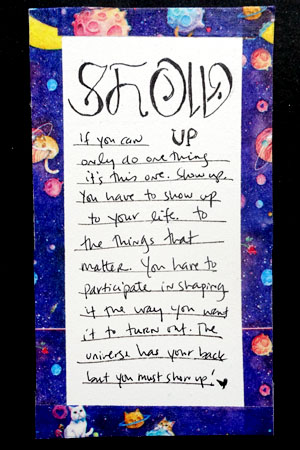 SHOW
UP
If you can
only do one thing
it's this one. Show up.
You have to show up
to your life. to
the things that
matter. You have to
participate in shaping
it the way you want
it to turn out. The
universe has your back
but you must show up!